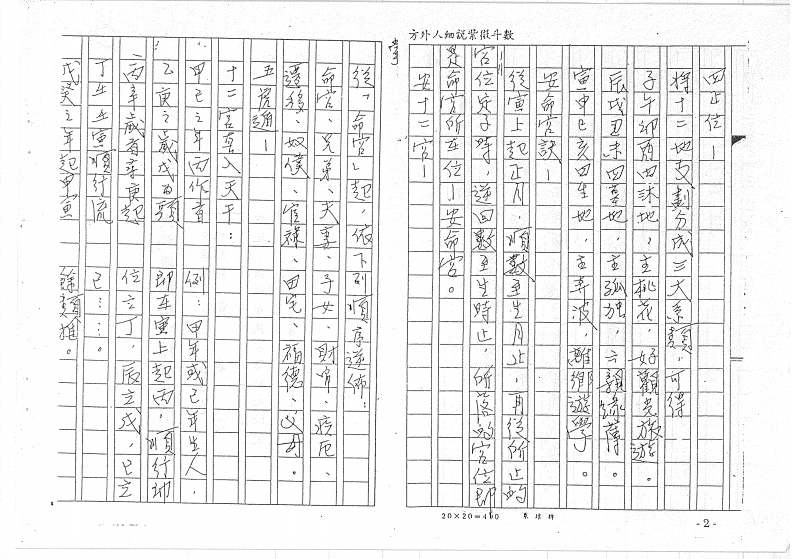 方外人細說紫微斗數
四正位—
將十二地支劃分成三大系類，可得
子午卯酉四沐地，主桃花，好觀光旅遊。
辰戌丑未四墓地，主孤獨，六親緣薄。
寅申巳亥四生地，主奔波，離鄉遊學。
安命宮訣—
從寅上起正月，順數至生月止，再從所止的
宮位安子時，逆回數至生時止，所落的宮位即
是命宮所在位—安命宮。
安十二宮—
從「命宮」起，依下列順序逆佈：
命宮、兄弟、夫妻、子女、財帛、疾厄、
遷移、奴僕、官祿、田宅、福德、父母。
五虎遁—
十二宮套入天干：
甲己之年丙作首
乙庚之歲戊為頭
丙辛歲首尋庚起
丁壬壬寅順行流
戊癸之年起甲寅
例：甲年或己年生人，
即在寅上起丙，順行卯
位立丁，辰立戊，巳立
己…。
餘類推。
20×20=400
- 2 -